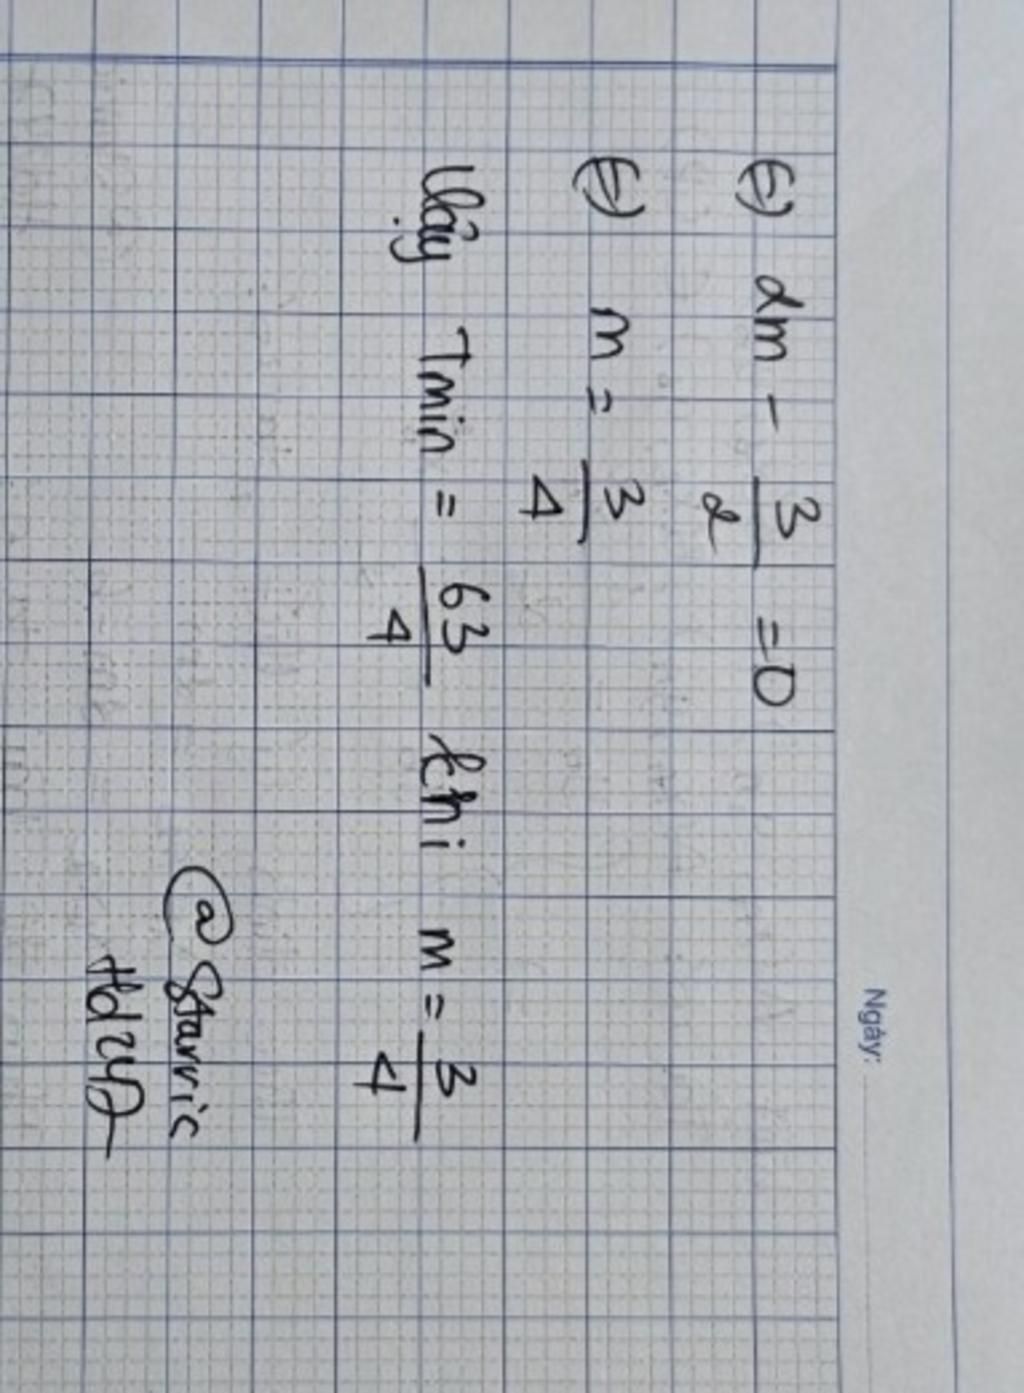 Ngày:
⇔ 2m - 3/2 = 0
⇔ m = 3/4
Vậy Tmin = 63/4 khi m = 3/4
@ Starric